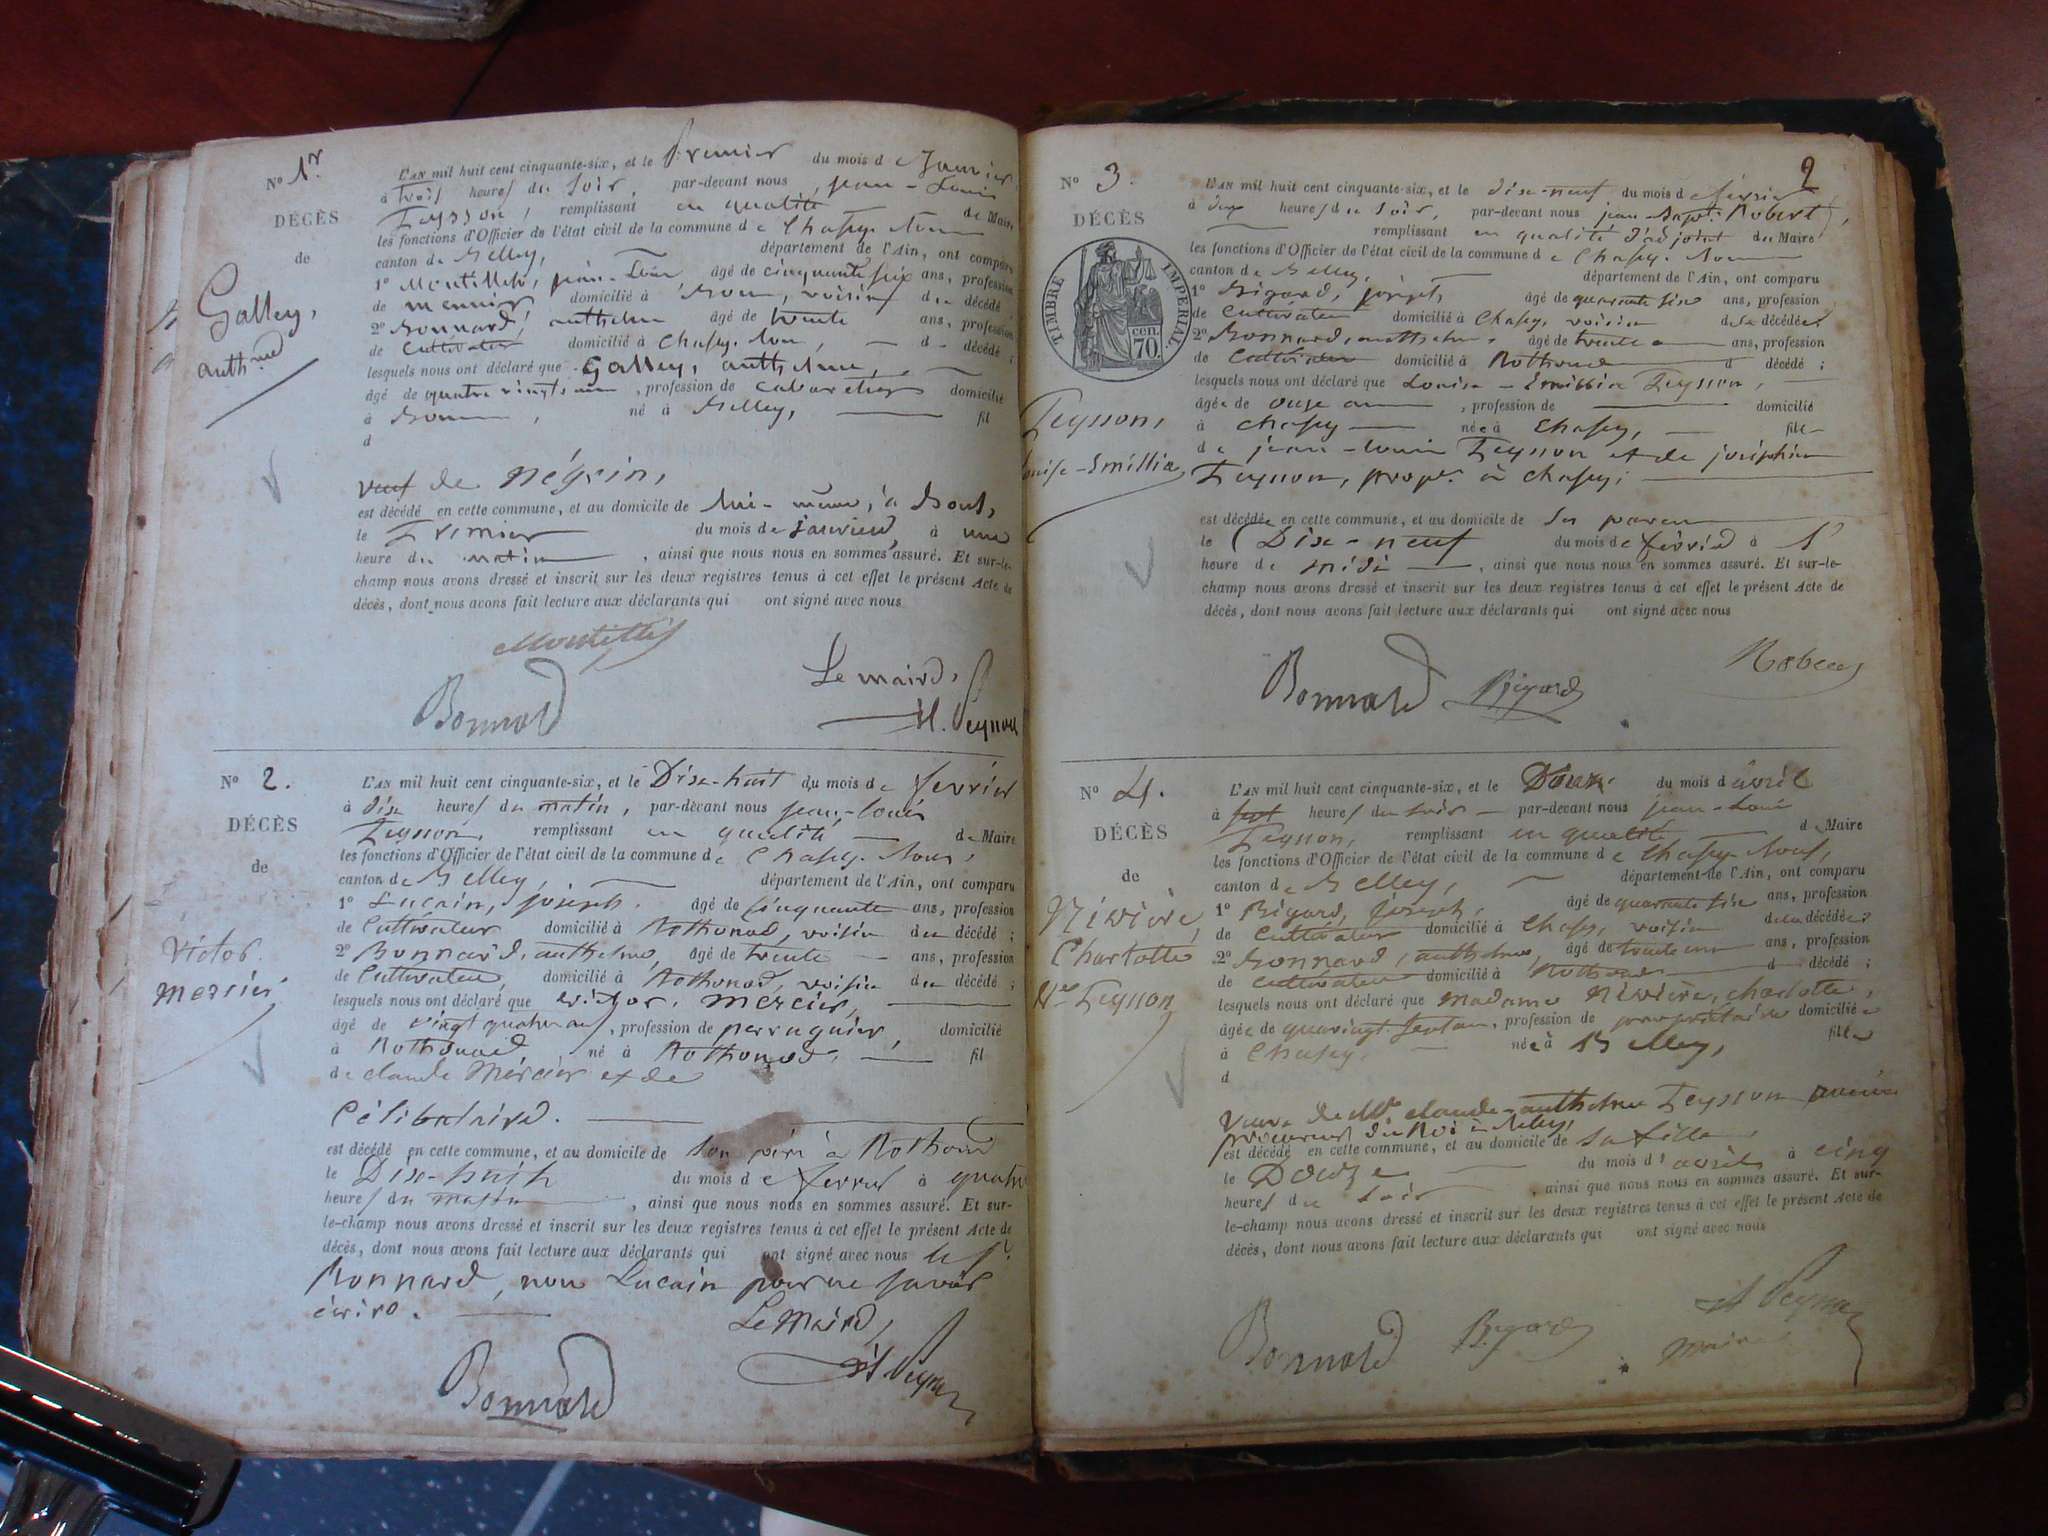 N° 1er.
DÉCÈS
de
Galley,
anth.me
L'AN mil huit cent cinquante-six, et le Premier du mois de Janvier
à trois heures du soir, par-devant nous, jean-Louis
Teysson, remplissant en qualité de Maire
les fonctions d'Officier de l'état civil de la commune de Chasey-
canton de Belley, département de l'Ain, ont comparu
1° jean-Louis âgé de cinquante six ans, profession
de meunier domicilié à Bons, voisin du décédé,
2° Bonnard, anthelme âgé de trente ans, profession
de Cultivateur domicilié à Chasey-Bons, d décédé ;
lesquels nous ont déclaré que Galley, anthelme,
âgé de quatre vingts ans, profession de cabaretier domicilié
à Bons, né à Belley, fil
d
veuf de négrin,
est décédé en cette commune, et au domicile de lui-même, à Bons,
le Premier du mois de janvier, à une
heure du matin, ainsi que nous nous en sommes assuré. Et sur-le-
champ nous avons dressé et inscrit sur les deux registres tenus à cet effet le présent Acte de
décès, dont nous avons fait lecture aux déclarants qui ont signé avec nous
Bonnard
Le maire,
N° 2.
DÉCÈS
de
Victor
Mercier
L'AN mil huit cent cinquante-six, et le Dix-huit du mois de fevrier
à dix heures du matin, par-devant nous jean-louis
Teysson, remplissant en qualité de Maire
les fonctions d'Officier de l'état civil de la commune de Chasey-Bons,
canton de Belley, département de l'Ain, ont comparu
1° Lucain, joseph. âgé de Cinquante ans, profession
de Cultivateur domicilié à Rothonod, voisin du décédé ;
2° Bonnard, anthelme, âgé de trente ans, profession
de Cultivateur, domicilié à Rothonod, voisin du décédé ;
lesquels nous ont déclaré que victor, mercier,
âgé de vingt quatre ans, profession de perruquier, domicilié
à Rothonod né à Rothonod, fil
de claude Mercier et de
Célibataire.
est décédé en cette commune, et au domicile de son père à Rothonod
le Dix-huit du mois de fevrier à quatre
heures du matin, ainsi que nous nous en sommes assuré. Et sur-
le-champ nous avons dressé et inscrit sur les deux registres tenus à cet effet le présent Acte de
décès, dont nous avons fait lecture aux déclarants qui ont signé avec nous le Sr.
Bonnard, non Lucain pour ne savoir
écrire.
Le Maire,
Bonnard
2
N° 3.
DÉCÈS
TIMBRE IMPERIAL.
70. cen.
Teysson,
Louise-Emillie
L'AN mil huit cent cinquante-six, et le dix-neuf du mois de février
à deux heures du soir, par-devant nous jean Bapt. Robert,
remplissant en qualité d'adjoint du Maire
les fonctions d'Officier de l'état civil de la commune de Chasey-Bons
canton de Belley, département de l'Ain, ont comparu
1° Bigard, joseph, âgé de quarante six ans, profession
de Cultivateur domicilié à Chasey, voisin de la décédée,
2° Bonnard, anthelme, âgé de trente ans, profession
de Cultivateur domicilié à Rothonod d décédé ;
lesquels nous ont déclaré que Louise-Emillie Teysson,
âgée de onze ans, profession de domicilié
à Chasey née à Chasey, fille
de jean-louis Teysson et de joséphine
Teysson, propr. à Chasey;
est décédée en cette commune, et au domicile de ses parens
le Dix-neuf du mois de février à l'
heure de midi, ainsi que nous nous en sommes assuré. Et sur-le-
champ nous avons dressé et inscrit sur les deux registres tenus à cet effet le présent Acte de
décès, dont nous avons fait lecture aux déclarants qui ont signé avec nous
Robert
Bonnard Bigard
N° 4.
DÉCÈS
de
Nivière,
Charlotte
Ve Teysson
L'AN mil huit cent cinquante-six, et le Douze du mois d'avril
à sept heures du soir par-devant nous jean-Louis
Teysson, remplissant en qualité de Maire
les fonctions d'Officier de l'état civil de la commune de Chasey-Bons,
canton de Belley, département de l'Ain, ont comparu
1° Bigard, joseph, âgé de quarante six ans, profession
de Cultivateur domicilié à Chasey, voisin de la décédée,
2° Bonnard, anthelme, âgé de trente ans, profession
de Cultivateur domicilié à Rothonod d décédé ;
lesquels nous ont déclaré que Madame Nivière, charlotte,
âgée de, profession de propriétaire domiciliée
à Chasey, née à Belley, fille
d
veuve de Mr. claude-anthelme Teysson ancien
procureur du Roi à Belley,
est décédé en cette commune, et au domicile de sa fille
le Douze du mois d'avril à cinq
heures du soir, ainsi que nous nous en sommes assuré. Et sur-
le-champ nous avons dressé et inscrit sur les deux registres tenus à cet effet le présent Acte de
décès, dont nous avons fait lecture aux déclarants qui ont signé avec nous
Bonnard Bigard
maire